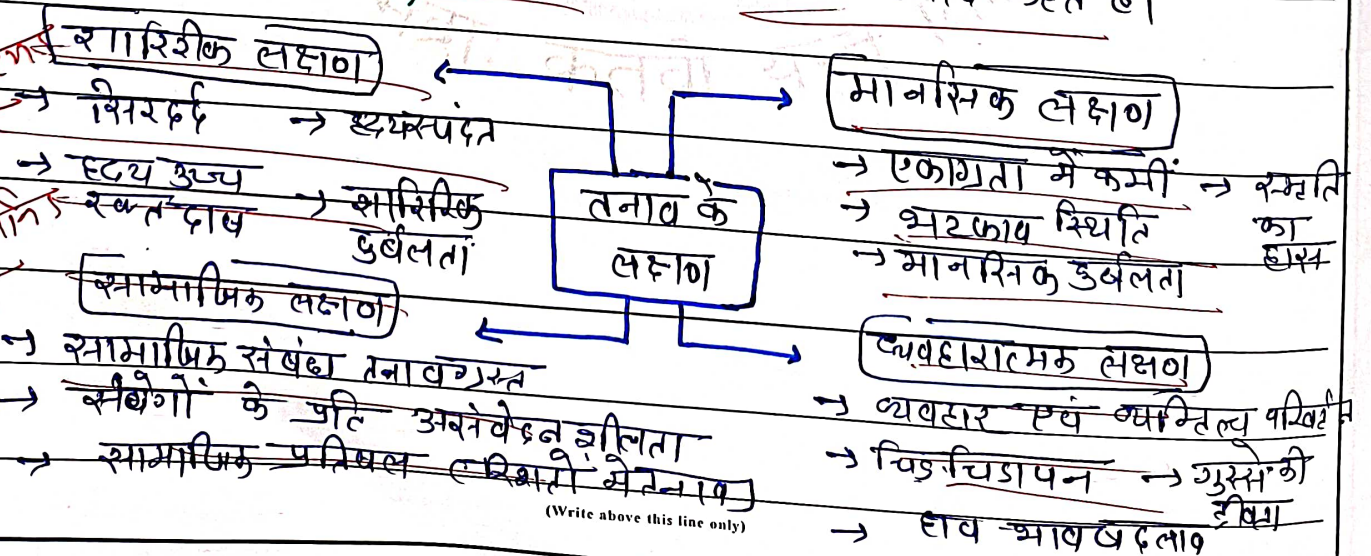 शारिरीक लक्षण
→ सिरदर्द → हृदयस्पंदन
→ हृदय उच्च
रक्तदाब → शारिरिक
दुर्बलता
तनाव के
लक्षण
मानसिक लक्षण
→ एकाग्रता में कमीं → स्मृति
का
ह्रास
→ भटकाव स्थिति
→ मानसिक दुर्बलता
सामाजिक लक्षण
→ सामाजिक संबंध तनावग्रस्त
→ संवेगों के प्रति असंवेदनशीलता
→ सामाजिक प्रतिबल (रिश्तों में तनाव)
व्यवहारात्मक लक्षण
→ व्यवहार एवं व्यक्तित्व परिवर्तन
→ चिड़चिडापन → गुस्से की
तीव्रता
→ हाव-भाव बदलाव
(Write above this line only)